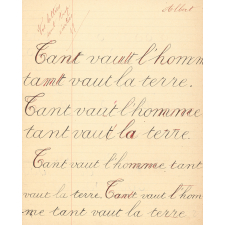 Albert
Tant vautt l'homm
tamtt vaut la terre.
Tant vaut l'homemme
tant vaut la terre.
Tant vaut l'hommme tant
vaut la terre. Tandt vaut l'hom
me tant vaut la terre